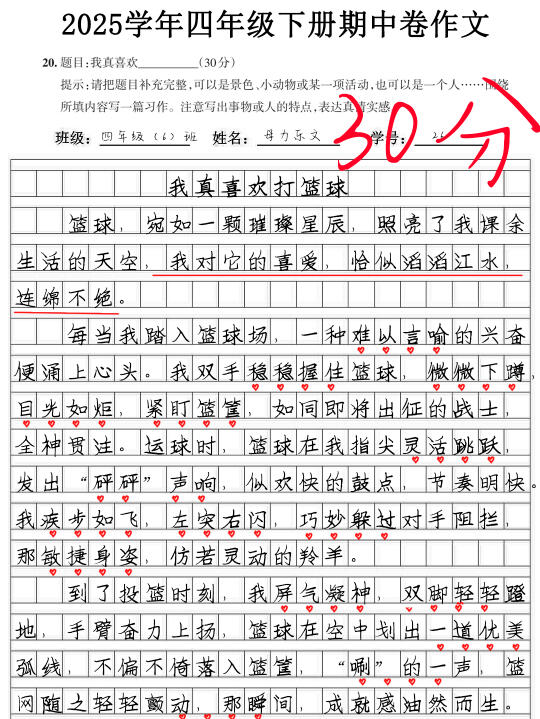 2025学年四年级下册期中卷作文
20. 题目:我真喜欢____________(30分)
提示:请把题目补充完整,可以是景色、小动物或某一项活动,也可以是一个人……围绕
所填内容写一篇习作。注意写出事物或人的特点,表达真情实感。
班级: 四年级(6)班 姓名: 母力乐文 学号:
30分
我真喜欢打篮球
篮球,宛如一颗璀璨星辰,照亮了我课余
生活的天空,我对它的喜爱,恰似滔滔江水,
连绵不绝。
每当我踏入篮球场,一种难以言喻的兴奋
便涌上心头。我双手稳稳握住篮球,微微下蹲,
目光如炬,紧盯篮筐,如同即将出征的战士,
全神贯注。运球时,篮球在我指尖灵活跳跃,
发出“砰砰”声响,似欢快的鼓点,节奏明快。
我疾步如飞,左突右闪,巧妙躲过对手阻拦,
那敏捷身姿,仿若灵动的羚羊。
到了投篮时刻,我屏气凝神,双脚轻轻蹬
地,手臂奋力上扬,篮球在空中划出一道优美
弧线,不偏不倚落入篮筐,“唰”的一声,篮
网随之轻轻颤动,那瞬间,成就感油然而生。